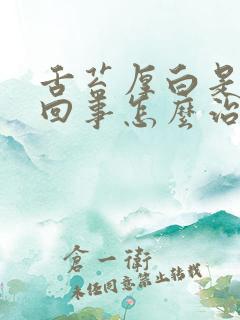 舌苔厚白是
回事怎麼治
倉一衛
未经同意禁止转载